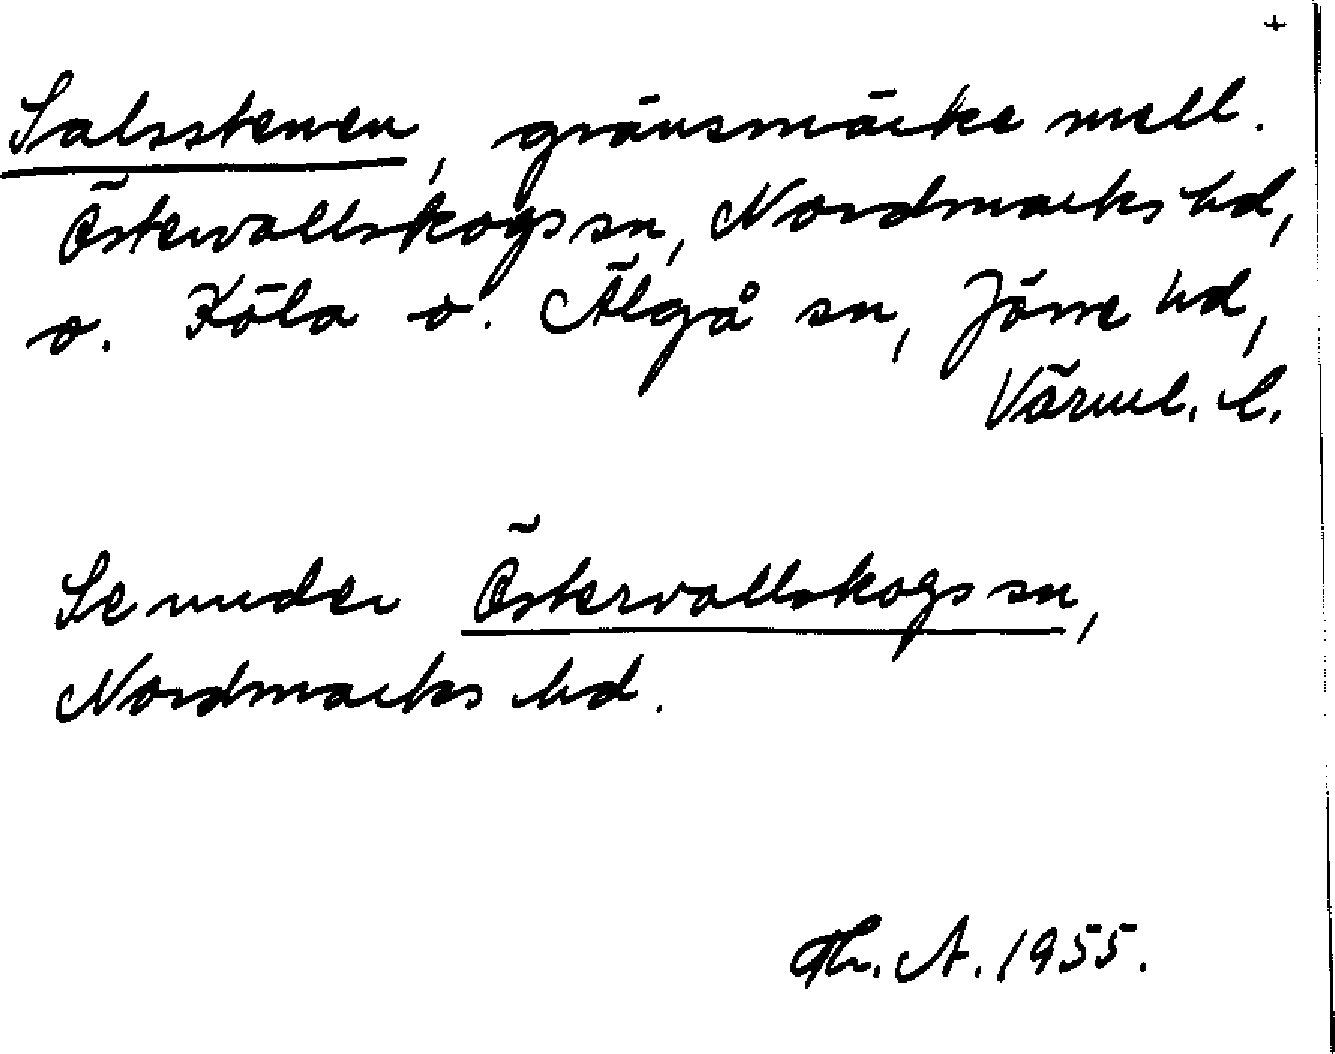 +
Salsstenen, gränsmärke mell.
Östervallskogs sn, Nordmarks hd,
o. Köla o. Älgå sn, Jösse hd,
Värml. l.
Se under Östervallskogs sn,
Nordmarks hd.
Th. A. 1955.